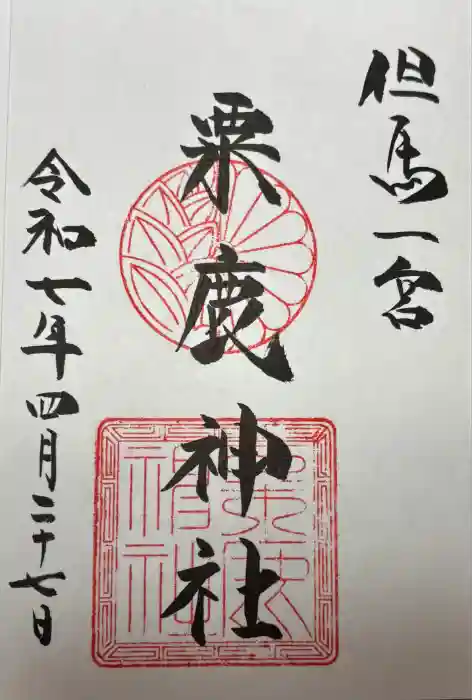 但馬一宮
粟鹿神社
粟鹿
神社
令和七年四月二十七日